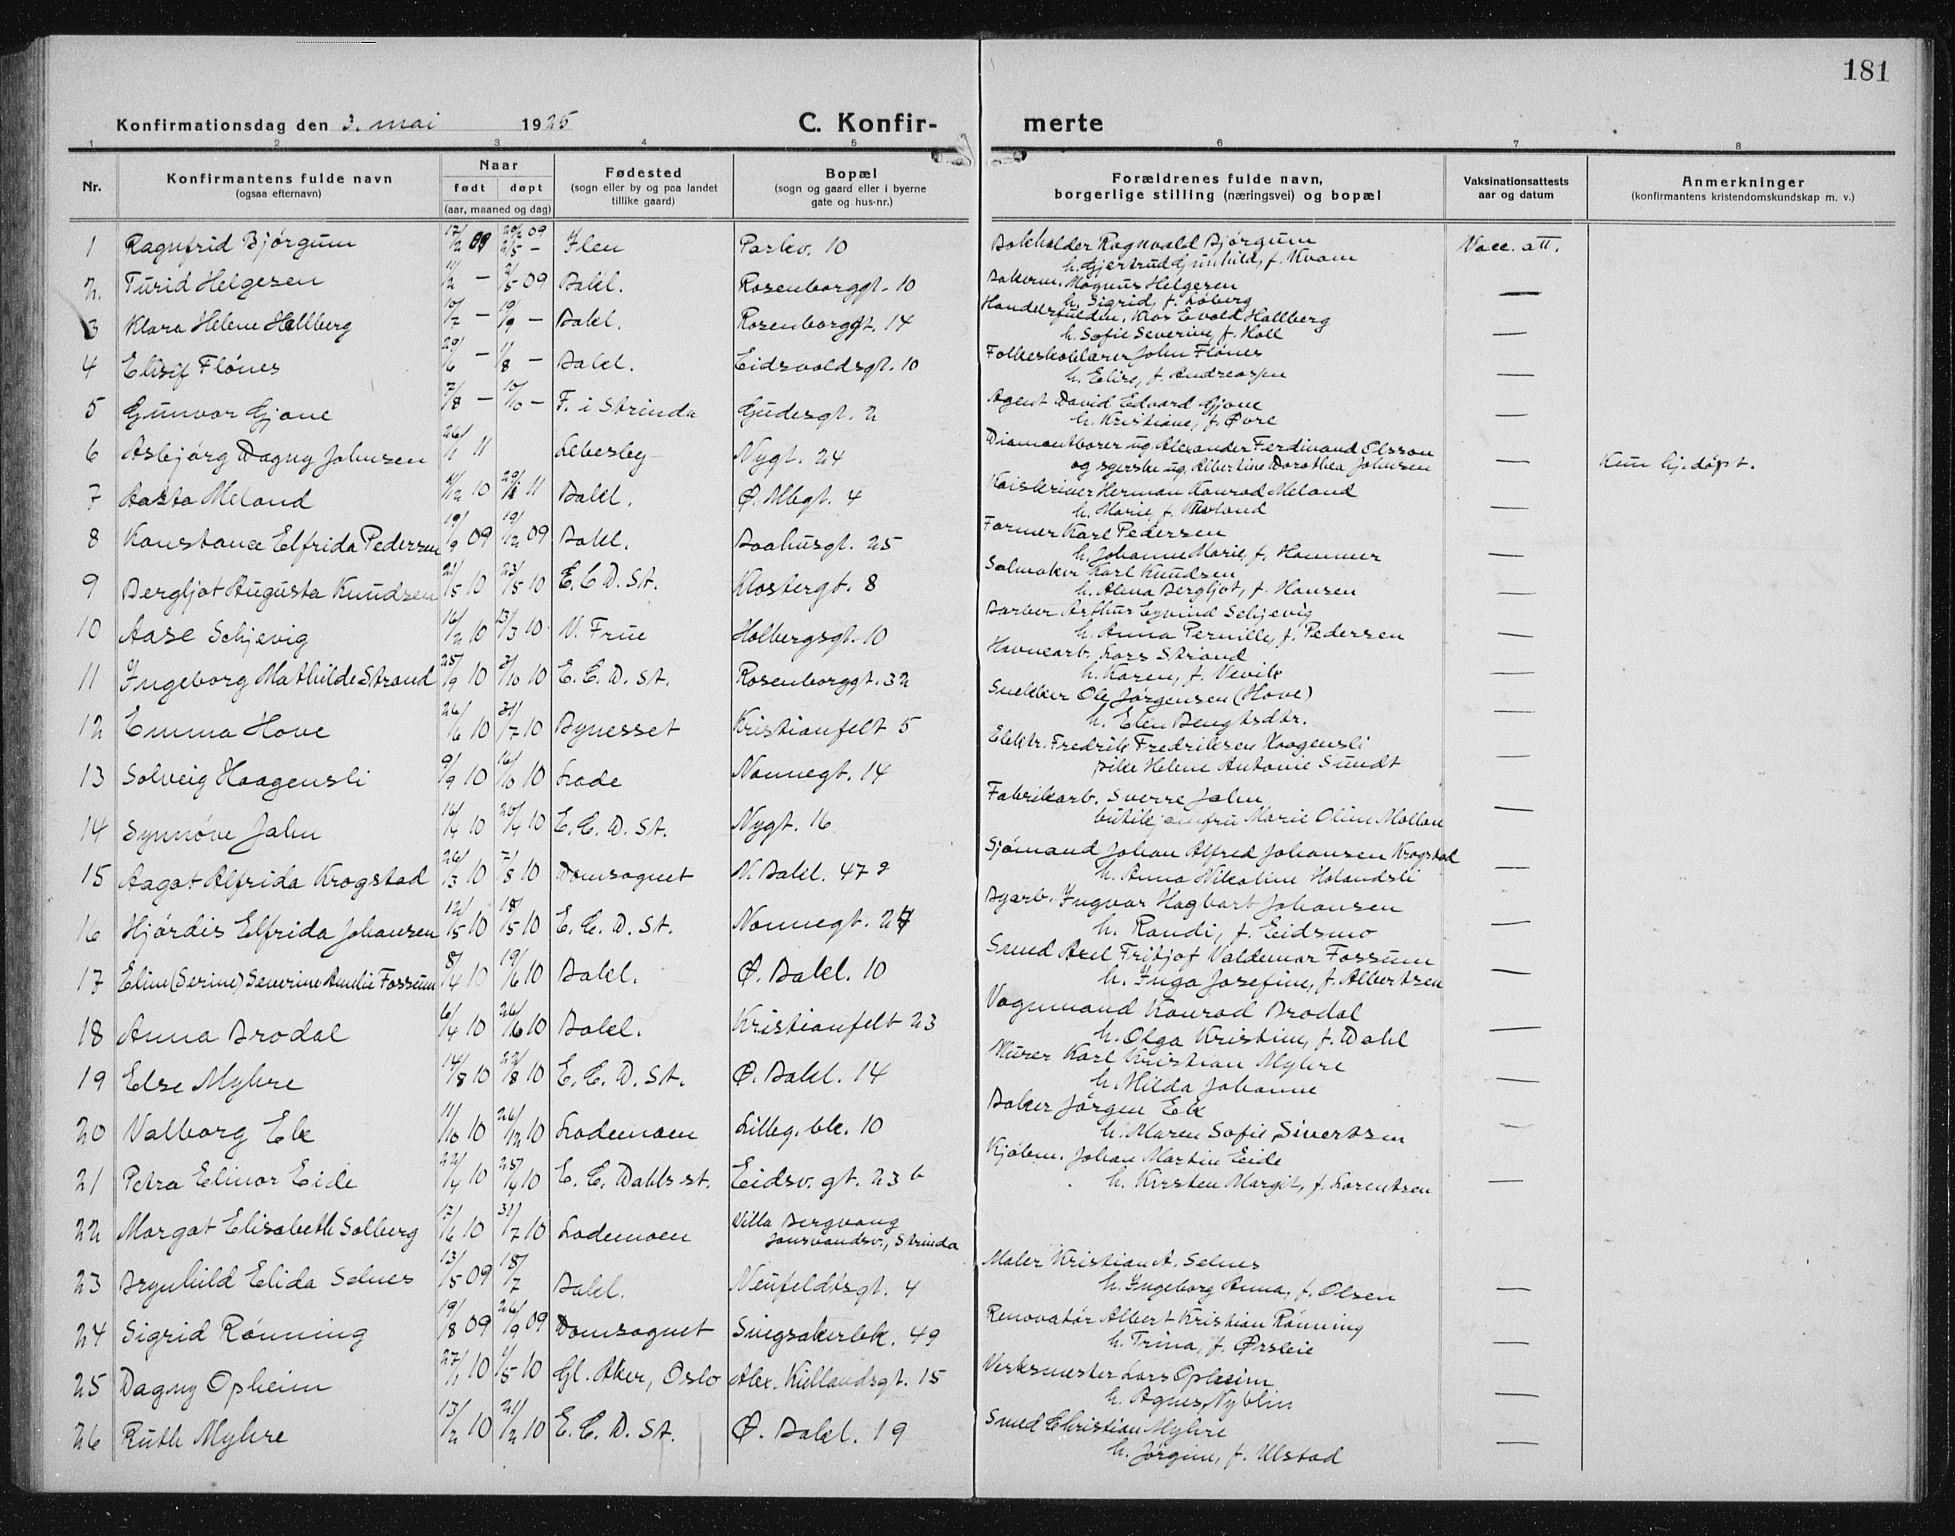 181
Konfirmationsdag den 3. mai 1925 C. Konfirmerte
1 2 3 4 5 6 7 8
Nr. Konfirmantens fulde navn (ogsaa efternavn) Naar født døpt (aar, maaned og dag) Fødested (sogn eller by og paa landet tillike gaard) Bopæl (sogn og gaard eller i byerne gate og hus-nr.) Forældrenes fulde navn, borgerlige stilling (næringsvei) og bopæl Vaksinationsattests aar og datum Anmerkninger (konfirmantens kristendomskundskap m. v.)
1 Ragnfrid Bjørgum 17/2 09 20/2 09 2/5 - Ilen Parkv. 10 Bokholder Ragnvald Bjørgum Vacc. att.
h. Gjertrud Gunhild, f. Kvam
2. Turid Helgesen 11/2 - 2/5 09 Bakl. Rosenborggt. 10 Bakerm. Magnus Helgesen —
h. Sigrid, f. Løberg
3 Klara Helene Hallberg 10/7 - 19/9 - Bakl. Rosenborggt. 14 Handelsfuldm. Klas Evald Hallberg —
h. Sofie Severine, f. Holl
4 Elisif Flønes 29/6 - 1/8 - Bakl. Eidsvoldsgt. 10 Folkeskolelærer John Flønes
h. Elise, f. Andreassen —
5 Gunvor Gjone 7/8 - 10/10 - F. i Strinda Gudesgt. 2 Agent David Edvard Gjone
h. Kristiane, f. Øvre —
6 Asbjørg Dagny Johnsen 26/1 11 Lebesby Nygt. 24 Diamantborer ug. Alexander Ferdinand Olsson
og syerske ug. Albertine Dorothea Johnsen — Kun hj.døpt.
7 Aasta Meland 11/12 10 29/1 11 Bakl. Ø. Mbgt. 4 Kaiskriver Herman Konrad Meland
h. Marie, f. Kuland —
8 Konstance Elfrida Pedersen 19/9 09 19/12 09 Bakl. Baahusgt. 25 Former Karl Pedersen
h. Johanne Marie, f. Hammer —
9 Bergljot Augusta Knudsen 21/5 10 23/5 10 E. C. D. St. Klostergt. 8 Salmaker Karl Knudsen
h. Alma Bergljot, f. Hansen —
10 Aase Schjevig 16/2 10 13/3 10 V. Frue Holbergsgt. 10 Barber Arthur Eyvind Schjevig
h. Anna Pernille, f. Pedersen —
11 Ingeborg Mathilde Strand 25/9 10 2/10 10 E. C. D. St. Rosenborggt. 32 Havnearb. Lars Strand
h. Karen, f. Nevik —
12 Emma Hove 26/6 10 31/7 10 Bynesset Kristianfelt 5 Snekker Ole Jørgensen (Hove)
h. Elen Bengtsdtr. —
13 Solveig Haagensli 9/9 10 16/10 10 Lade Nonnegt. 14 Elektr. Fredrik Fredriksen Haagensli
pike Helene Antonie Sundt —
14 Synnøve Jahn 16/4 10 20/4 10 E. C. D. St. Nygt. 16 Fabrikarb. Sverre Jahn
butikjomfru Marie Oline Mollan —
15 Aagot Alfrida Krogstad 26/3 10 7/8 10 Domsognet N. Bakl. 47 g Sjømand Johan Alfred Johansen Krogstad
h. Anna Nikoline Holandsli —
16 Hjørdis Elfrida Johansen 12/5 10 18/5 10 E. C. D. St. Nonnegt. 27 Byarb. Ingvar Hagbart Johansen
h. Randi, f. Eidsmo —
17 Eline (Serine) Severine Amalie Fossum 8/4 10 19/6 10 Bakl. Ø. Bakl. 10 Smed Axel Fritjof Valdemar Fossum
h. Inga Josefine, f. Albertsen —
18 Anna Brodal 6/4 10 26/6 10 Bakl. Kristianfelt 23 Vognmand Konrad Brodal
h. Olga Kristine, f. Dahl —
19 Else Myhre 14/8 10 22/8 10 E. C. D. St. Ø. Bakl. 14 Murer Karl Kristian Myhre
h. Hilda Johanne —
20 Valborg Ek 11/10 10 26/12 10 Lademoen Lilleg. bk. 10 Baker Jørgen Ek
h. Maren Sofie Sivertsen —
21 Petra Elinor Eide 22/4 10 25/4 10 E. C. Dahls st. Eidsv. gt. 23 b Kjølem. Johan Martin Eide
h. Kirsten Margit, f. Lorentsen —
22 Margot Elisabeth Solberg 17/6 10 31/7 10 Lademoen Villa Bergvang
Jonsvandsv., Strinda
23 Brynhild Elida Selnes 13/5 09 18/7 Bakl. Neufeldtsgt. 4 Maler Kristian A. Selnes
h. Ingeborg Anna, f. Olsen —
24 Sigrid Rønning 19/8 09 26/9 09 Domsognet Singsakerbk. 49 Renovatør Albert Kristian Rønning
h. Trina, f. Ørsleie —
25 Dagny Opheim 27/1 10 1/5 10 Gl. Aker, Oslo Alex. Kiellandsgt. 15 Verksmester Lars Opheim
h. Agnes, Nyblin —
26 Ruth Myhre 13/2 10 21/2 10 E. C. D. St. Ø. Bakl. 19 Smed Christian Myhre
h. Jørgine, f. Ulstad —